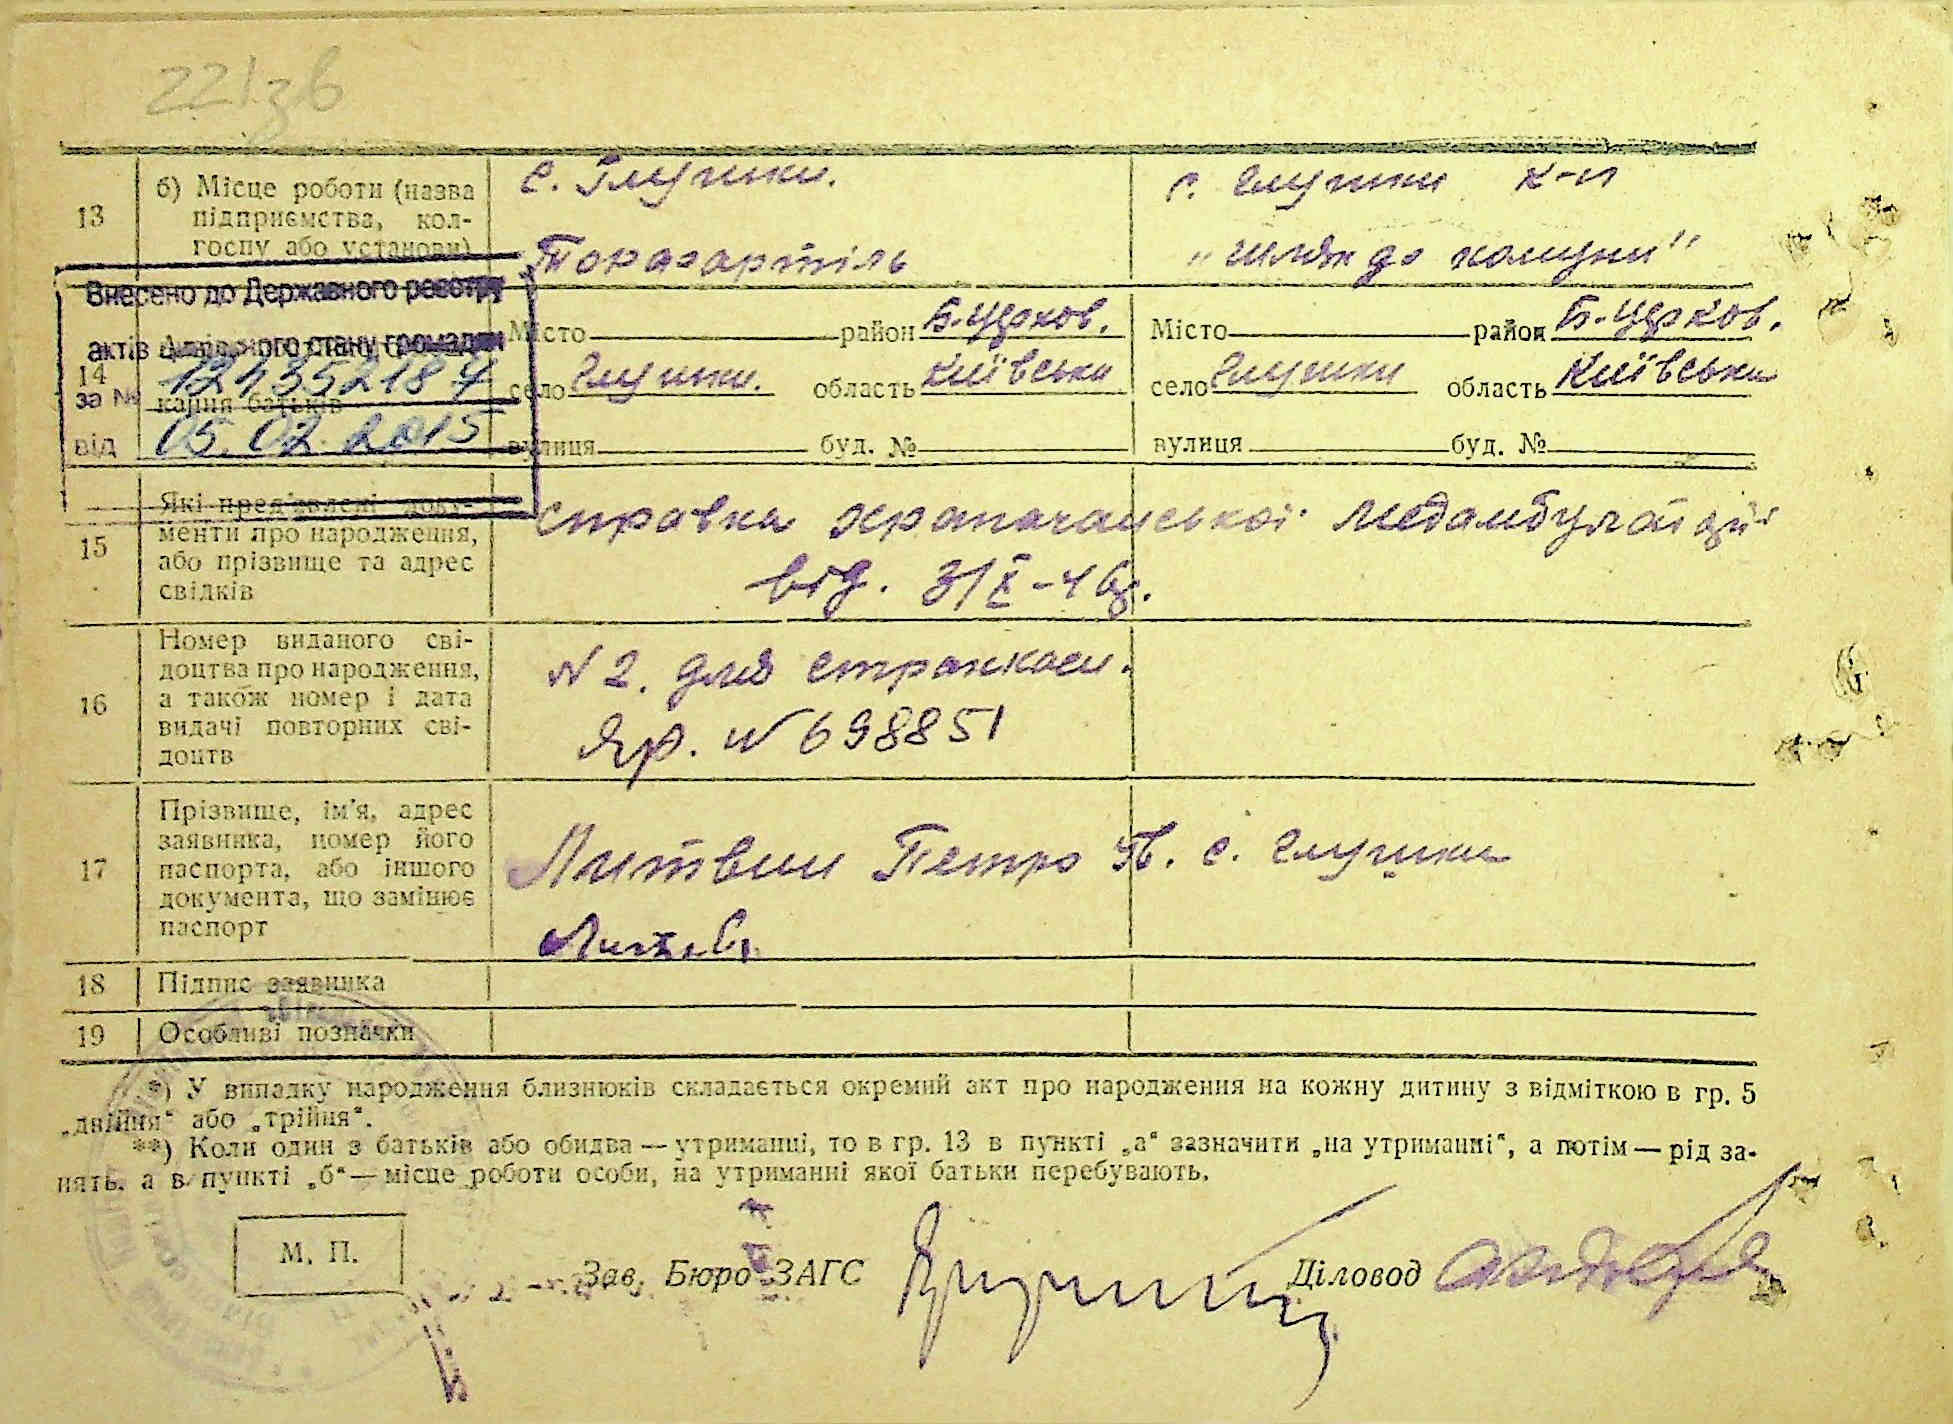 221зв
13
б) Місце роботи (назва
підприємства, кол-
госпу або установи)
с. Глушки.
Токагартіль
с. Глушки к-п
"Шлях до комуни"
Внесено до Державного реєстру
актів цивільного стану громадян
за № 12435218
від 05.02.2015
14
кання батьків
Місто район Б-Церков.
село Глушки. область Київська
вулиця буд. №
Місто район Б-Церков.
село Глушки область Київська
вулиця буд. №
15
Які пред'явлені доку-
менти про народження,
або прізвище та адрес
свідків
справка медамбулаторії
від. 31/X-46р.
16
Номер виданого сві-
доцтва про народження,
а також номер і дата
видачі повторних сві-
доцтв
N 2. для страхкаси.
N 698851
17
Прізвище, ім'я, адрес
заявника, номер його
паспорта, або іншого
документа, що замінює
паспорт
Литвин Петро П. с. Глушки
18
Підпис заявника
19
Особливі позначки
*) У випадку народження близнюків складається окремий акт про народження на кожну дитину з відміткою в гр. 5
„двійня“ або „трійня“.
**) Коли один з батьків або обидва — утриманці, то в гр. 13 в пункті „а“ зазначити „на утриманні“, а потім — рід за-
нять, а в пункті „б“ — місце роботи особи, на утриманні якої батьки перебувають.
М. П.
Зав. Бюро ЗАГС
Діловод